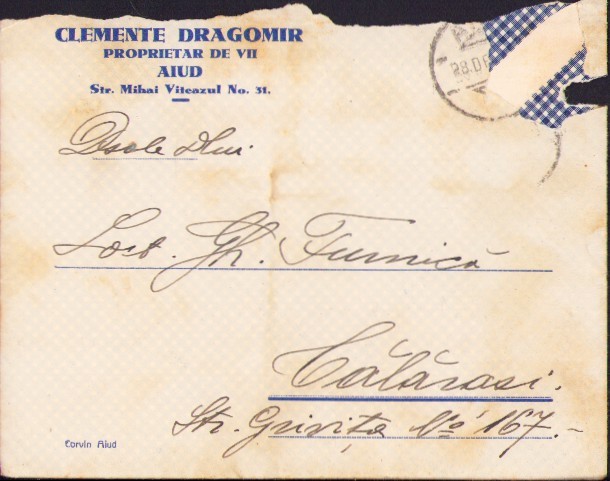 CLEMENTE DRAGOMIR
PROPRIETAR DE VII
AIUD
Str. Mihai Viteazul No. 31.
28. D
Dsale Dlui
Gh. Furnică
Călărasi.
Str. Griviţa No 167.-
Corvin Aiud